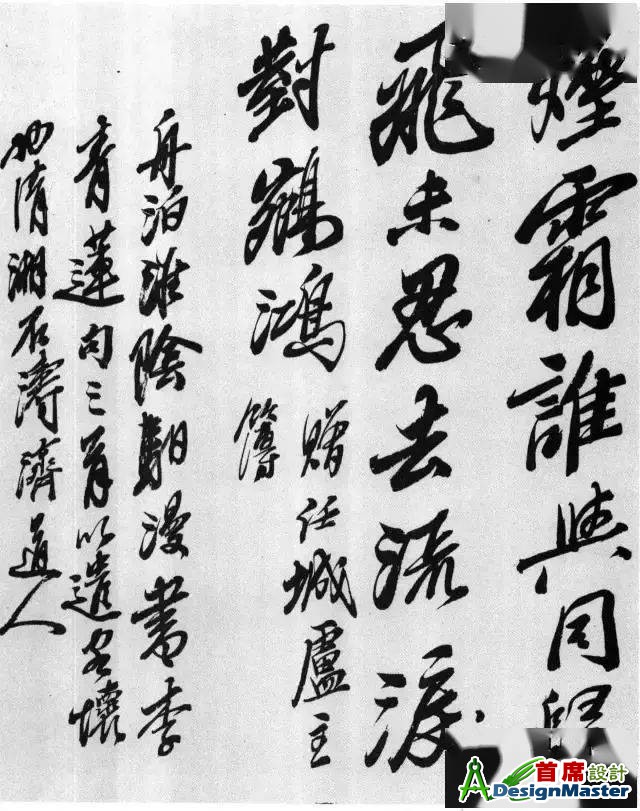 煙霜誰與同
飛未忍去流淚
對鵷鴻
贈任城盧主
簿
舟泊淮陰漫書李
青蓮句三首以遣客懷
清湘石濤濟道人
首席設計
DesignMaster